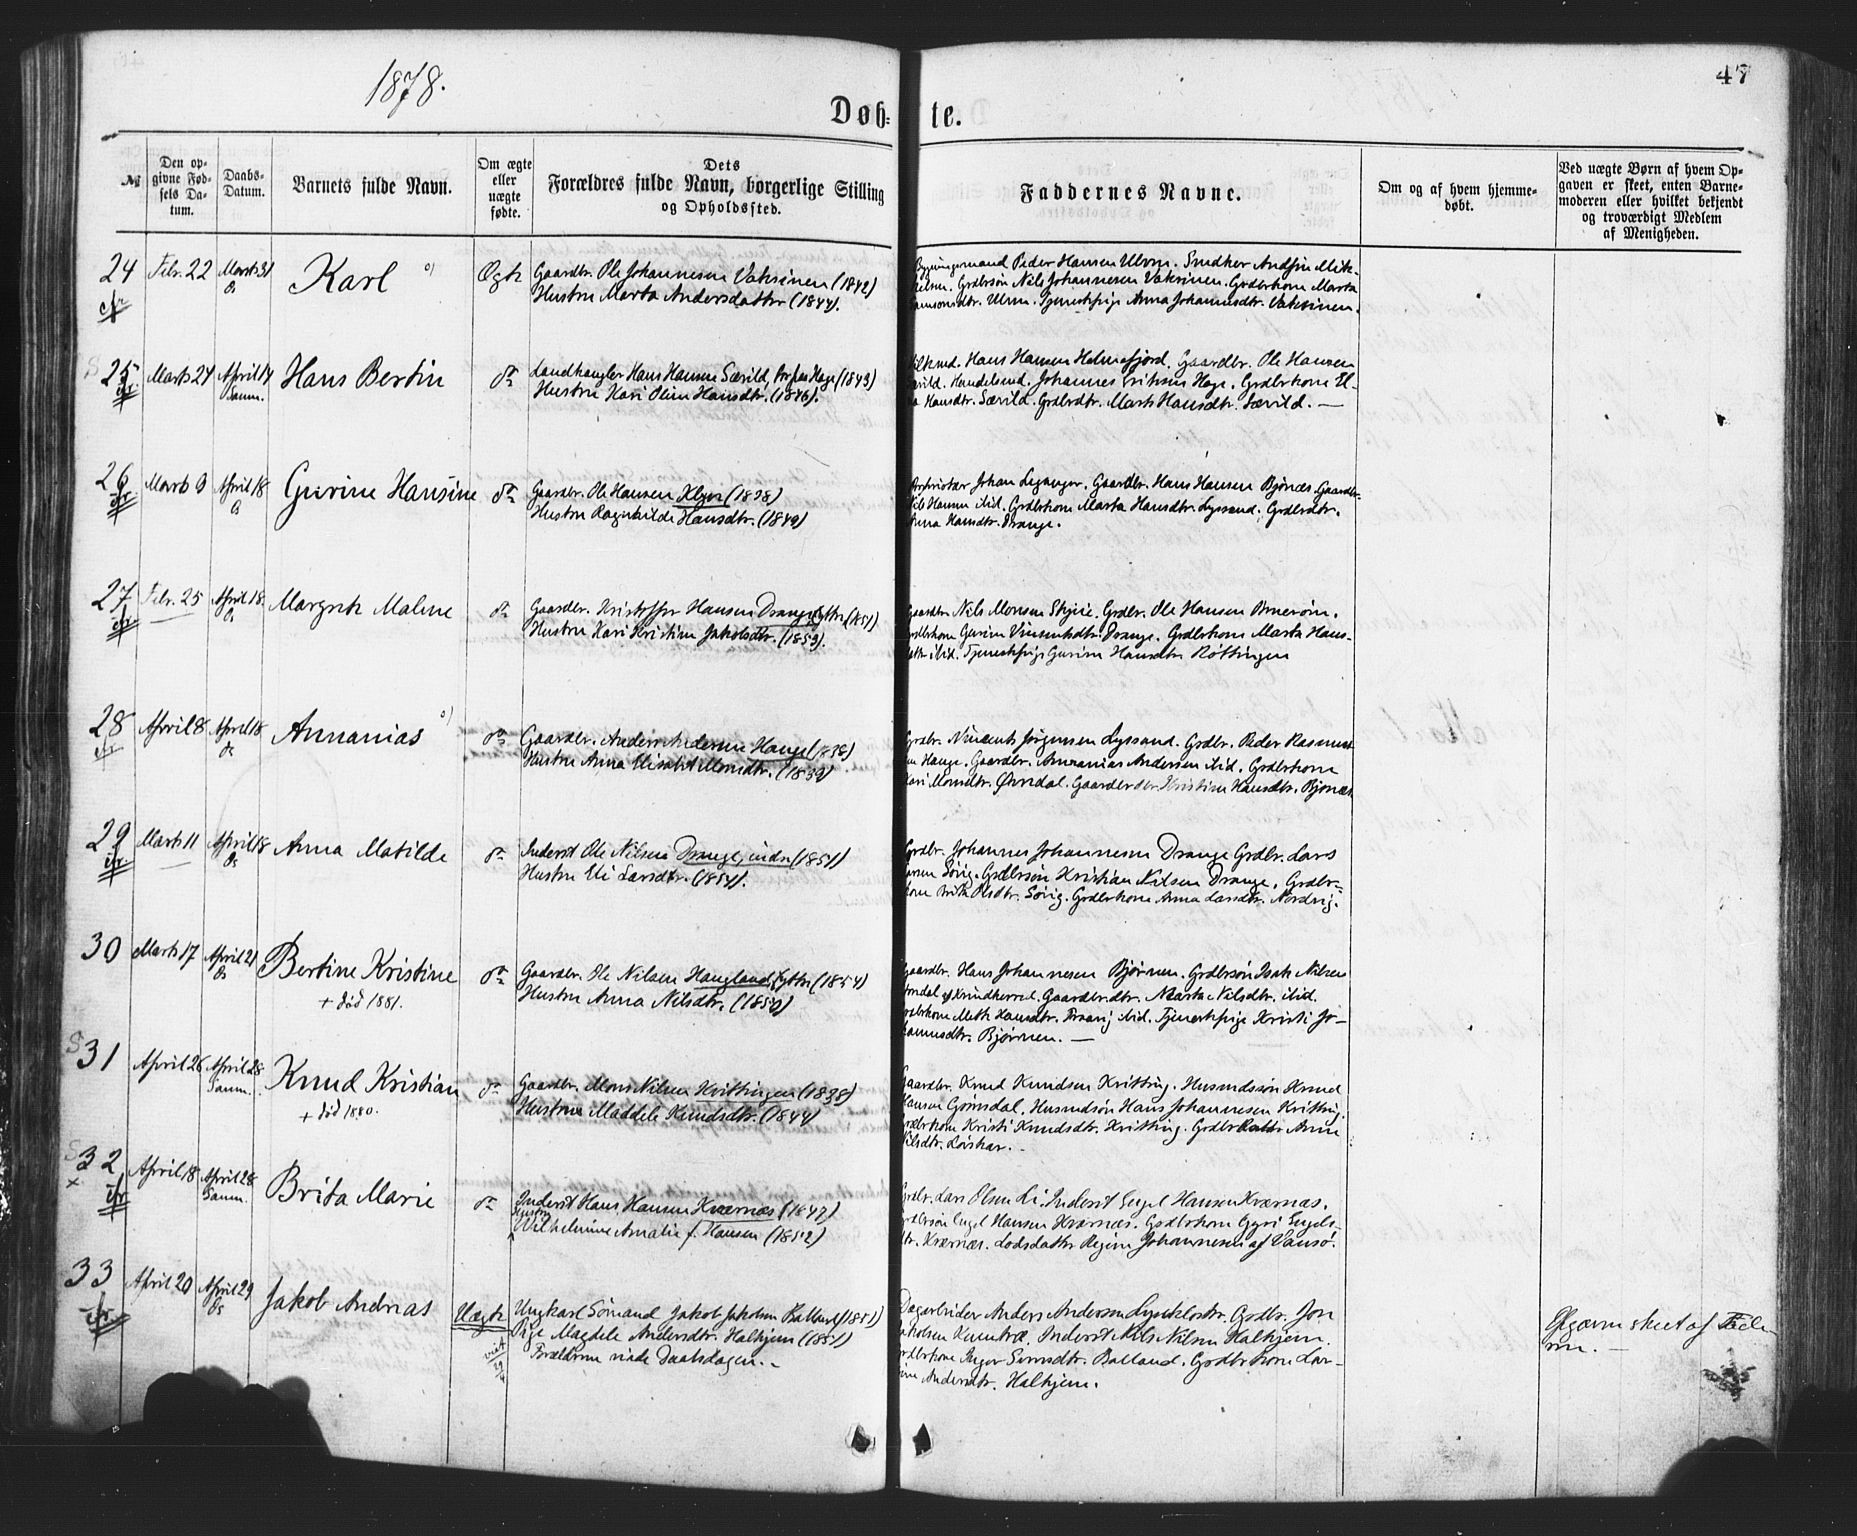 1878.
47
Døb-te.
№
Den op-
givne Fød-
sels Da-
tum.
Daabs-
Datum.
Barnets fulde Navn.
Om ægte
eller
uægte
fødte.
Dets
Forældres fulde Navn, borgerlige Stilling
og Opholdssted.
Faddernes Navne.
Om og af hvem hjemme-
døbt.
Ved uægte Børn af hvem Op-
gaven er skeet, enten Barne-
moderen eller hvilket bekjendt
og troværdigt Medlem
af Menigheden.
24 Febr. 22 Marts 31 Karl Ægte
Os
Gaardbr. Ole Johannesen Vaksinen (1842)
Hustru Marta Andersdatter (1844).
Bygningsmand Peder Hansen Ulven. Snedker Andfin Mik-
kelsen. Grdbrsøn Nils Johannesen Vaksinen. Grdbrkone Marta
Samsonsdtr. Ulven. Tjenestepige Anna Johannesdtr. Vaksinen.
25 Marts 24 April 14 Hans Bertin do
Samn.
Landhandler Hans Hansen Særild, (1843)
Hustru Kari Oline Hansdtr. (1846).
Hans Hansen Holmefjord. Gaardbr. Ole Hansen
Særild. Handelsmd. Johannes Eriksen Hage. Grdbrkone El-
Hansdtr. Særild. Grdbrdtr. Marta Hansdtr. Særild. —
26 Marts 9 April 18 Gurine Hansine do
Os
Gaardbr. Ole Hansen Klyve (1838)
Hustru Ragnhilde Hansdtr. (1849)
Johan Leganger. Gaardbr. Hans Hansen Bjønæs. Gaardbr.
Nils Hansen ibid. Grdbrkone Marta Hansdtr. Lyssand. Grdbrdtr.
Anna Hansdtr. Drange.
27 Febr. 25 April 18 Margrete Malene do
Os
Gaardbr. Kristoffer Hansen Drange, yttre (1851)
Hustru Kari Kristine Jakobsdtr. (1853).
Gaardbr. Nils Monsen Skeie. Grdbr. Ole Hansen
Grdbrkone Gurine Vincentsdtr. Drange. Grdbrkone Marta Hans-
datter ibid. Tjenestepige Gurine Hansdtr. Røttingen
28 April 8 April 18 Annanias do
Os
Gaardbr. Anders Andersen Hauge (1838)
Hustru Anna Elisabet Monsdtr. (1839)
Grdbr. Vincents Jørgensen Lyssand. Grdbr. Peder Rasmus-
sen Hauge. Gaardbr. Annanias Andersen ibid. Grdbrkone
Kari Monsdtr. Øvredal. Gaardbrdtr. Kristine Hansdtr. Bjønæs
29 Marts 11 April 18 Anna Matilde do
Os
Inderst Ole Nilsen Drange, indre (1851)
Hustru Eli Larsdtr. (1854).
Grdbr. Johannes Johannesen Drange Grdbr. Lars
Larsen Søvig. Grdbrsøn Kristian Nilsen Drange. Grdbr-
kone Brita Olsdtr. Søvig. Grdbrkone Anna Larsdtr. Nordvig.
30 Marts 17 April 21 Bertine Kristine do
Os
+ død 1881.
Gaardbr. Ole Nilsen Haugland, yttre (1854)
Hustru Anna Nilsdtr. (1850)
Gaardbr. Hans Johannesen Bjørnen. Grdbrsøn Isak Nilsen
af Kvindherred. Gaardbr.dtr. Marta Nilsdtr. ibid.
Grdbrkone Mette Hansdtr. ibid. Tjenestepige Kristi Jo-
hannesdtr. Bjørnen. —
31 April 26 April 28 Knud Kristian do
Samn.
+ død 1880.
Gaardbr. Mons Nilsen Hvittingen (1838)
Hustru Maddele Knudsdtr. (1844)
Gaardbr. Knud Knudsen Hvitting. Husmdssøn Knud
Hansen Gjønsdal. Husmdsøn Hans Johannesen Hvitting.
Grdbrkone Kristi Knudsdtr. Hvitting. Grdbrdatter Anne
Nilsdtr. Løvhar. -
32 April 18 April 28 Brita Marie do
Samn.
Inderst Hans Hansen Kværnæs (1847)
Hustru Wilhelmine Amalie f. Hansen (1852)
Grdbr. Lars Olsen Li. Inderst Engel Hansen Kværnæs.
Grdbrsøn Engel Hansen Kværnæs. Grdbrkone Gyri Engels-
dtr. Kværnæs. Lodsdatter Regine Johannesen af Vansø.
33 April 20 April 29 Jakob Andreas Uægte
Os
Ungkarl Sømand Jakob Jakobsen Balland (1851)
Pige Magdele Andersdtr. Halhjem (1851)
Forældrene viede Daabsdagen. -
Dagarbeider Anders Andersen Lysekloster. Grdbr. Jon
Jakobsen Inderst Nils Nilsen Halhjem.
Grdbrkone Inger Simsdtr. Balland. Grdbrkone Lar-
Andersdtr. Halhjem.
Opgaven skeet af Fade-
ren. —